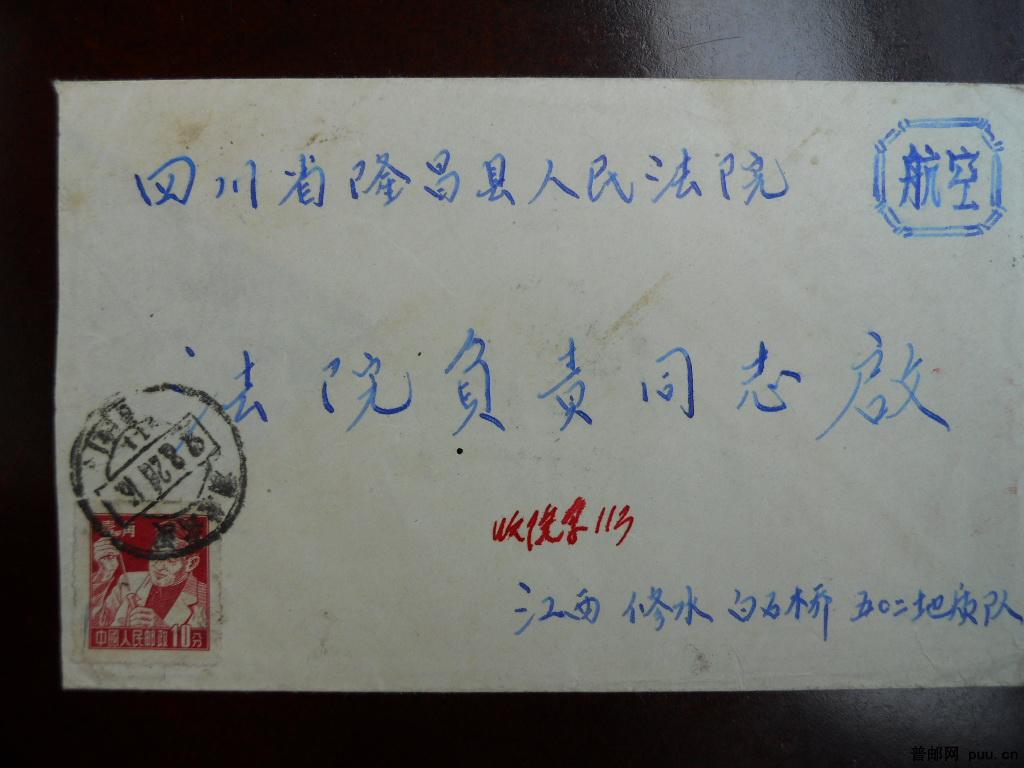 四川省隆昌县人民法院
航空
法院負责同志啟
113
江西 修水 白石桥 五〇二地质队
壹角
中國人民郵政 10分
普邮网 puu.cn